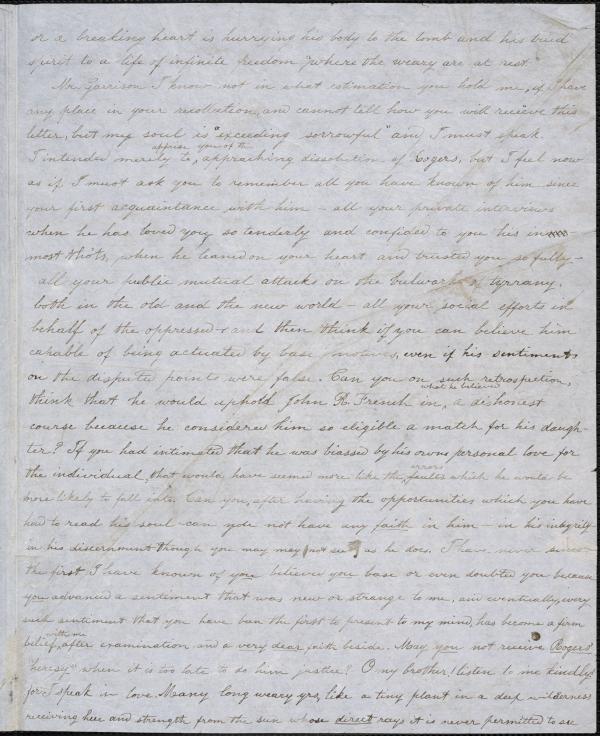 or a breaking heart is hurrying his body to the tomb and his tried
spirit to a life of infinite freedom "where the weary are at rest"
Mr. Garrison I know not in what estimation you hold me, if I have
any place in your recollection, and cannot tell how you will receive this
letter, but my soul is "exceeding sorrowful" and I must speak.
apprise you of the
I intended merely to, approaching dissolution of Rogers, but I feel now
as if I must ask you to remember all you have known of him since
your first acquaintance with him - all your private interviews
when he has loved you so tenderly and confided to you his in
most tho'ts, when he leaned on your heart and trusted you so fully -
all your public mutual attacks on the bulwarks of tyranny,
both in the old and the new world - all your social efforts in
behalf of the oppressed - and then think if you can believe him
capable of being actuated by base motives, even if his sentiments
on the disputed points were false. Can you on such retrospection,
what he believed
think that he would uphold John R. French in, a dishonest
course because he considered him so eligible a match for his daugh-
ter? If you had intimated that he was biassed by his own personal love for
errors
the individual, that would have seemed more like the, faults which he would be
more likely to fall into. Can you, after having the opportunities which you have
had to read his soul - can you not have any faith in him - in his integrity
in his discernment though you may may not see as he does. I have never since
the first I have known of you believed you base or even doubted you because
you advanced a sentiment that was new or strange to me, and eventually, every
such sentiment that you have been the first to present to my mind, has become a firm
with me
belief, after examination and a very dear faith beside. May you not receive Rogers'
"heresy" when it is too late to do him justice? O my brother! listen to me kindly!
for I speak in love. Many long weary yrs, like a tiny plant in a deep wilderness
receiving hue and strength from the sun whose direct rays it is never permitted to see